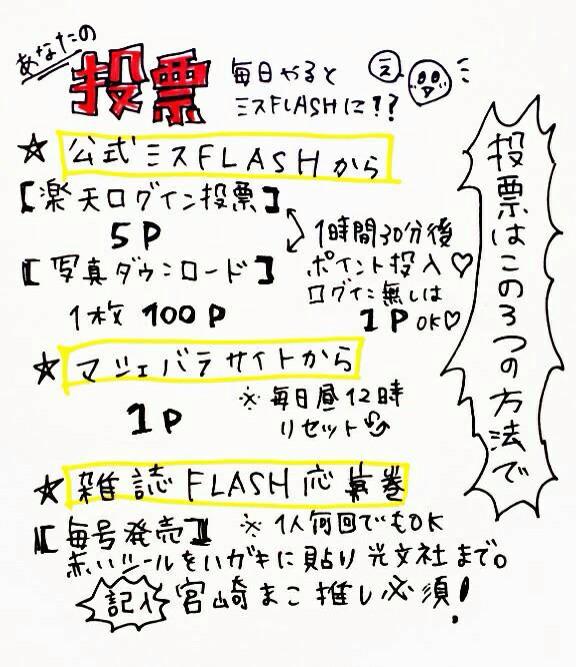 あなたの
投票
毎日やると
ミスFLASHに!?
え
投票はこの3つの方法で
☆ 公式ミスFLASHから
【楽天ログイン投票】
5P
【写真ダウンロード】
1枚 100P
1時間30分後
ポイント投入♡
ログイン無しは
1P OK♡
☆ マジェバラサイトから
1P
※毎日昼12時
リセット
☆ 雑誌FLASH応募券
【毎号発売】
※1人何回でもOK
赤いシールをハガキに貼り光文社まで。
記入 宮崎まこ推し必須!